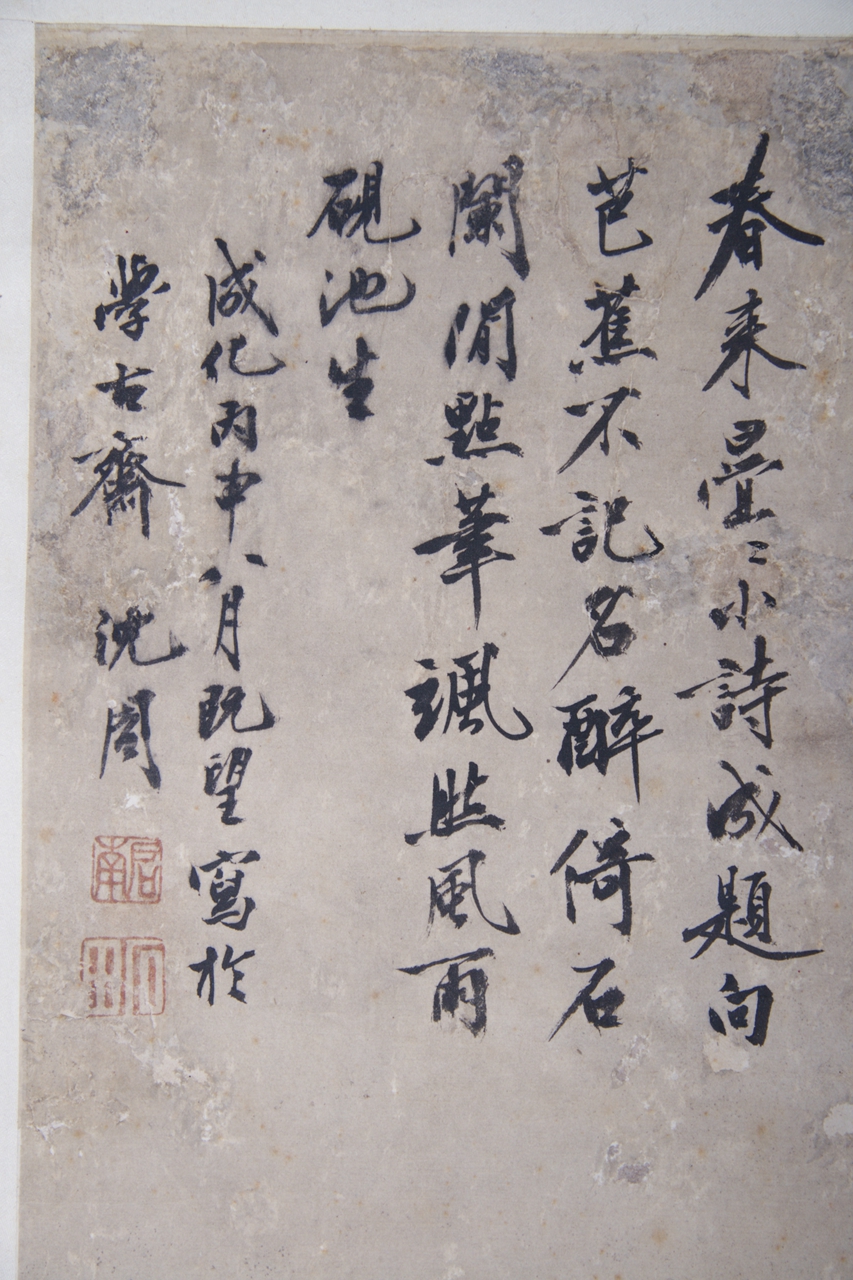 春来疊〻小詩成題向
芭蕉不記名醉倚石
闌閒點筆颯然風雨
硯池生
成化丙申八月既望寫於
學古齋 沈周
啟南
石田